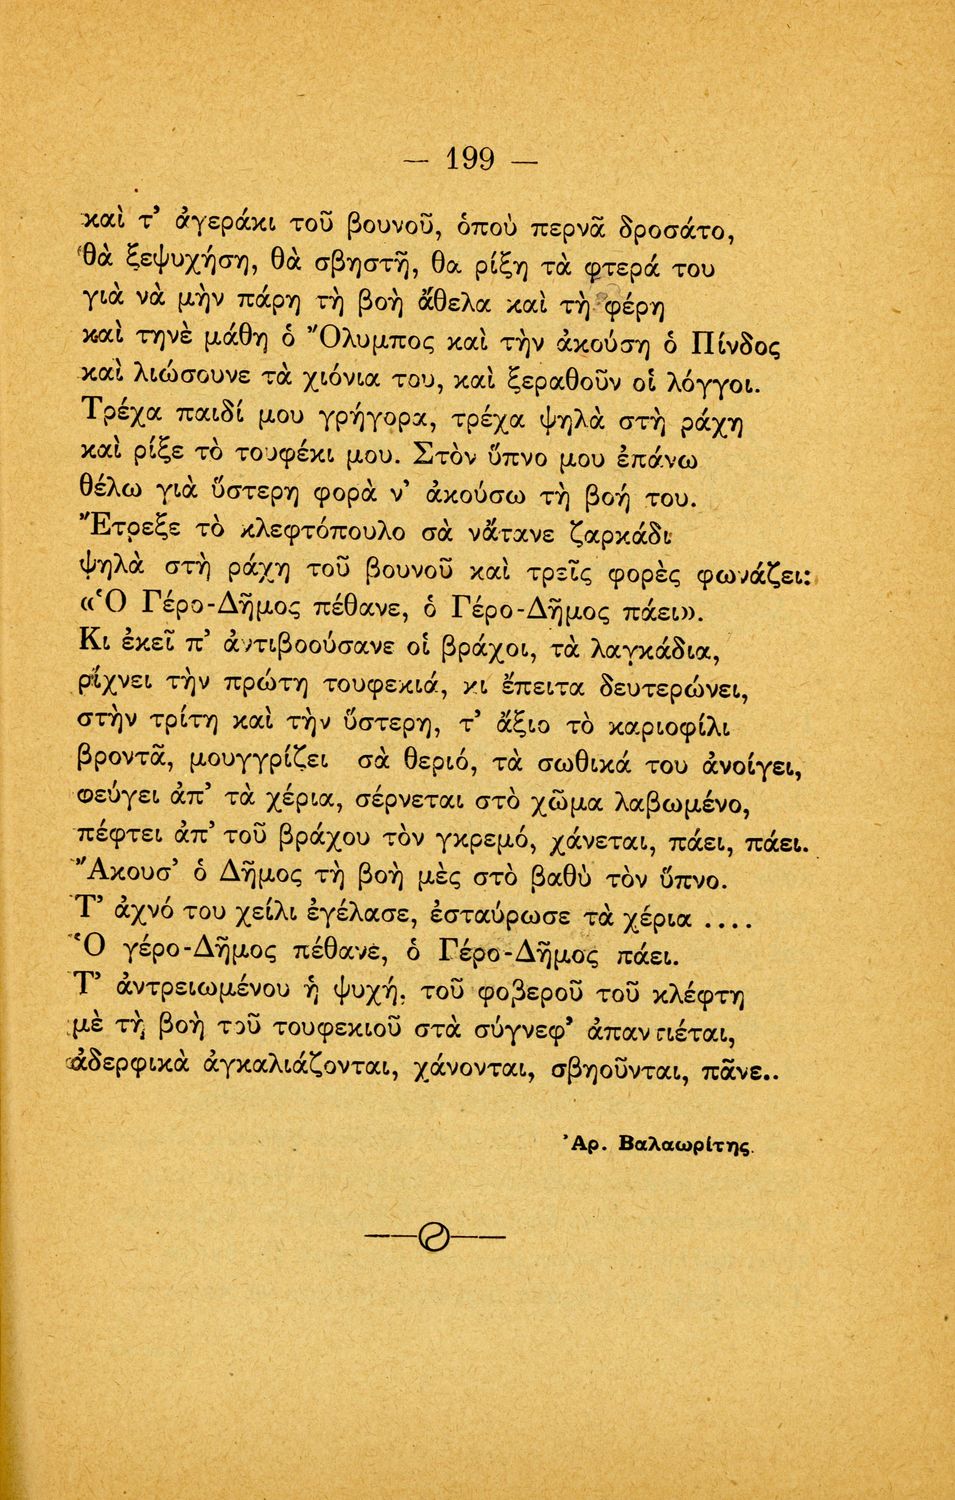 — 199 —
καὶ τ’ ἀγεράκι τοῦ βουνοῦ, ὁποὺ περνᾶ δροσάτο,
θὰ ξεψυχήσῃ, θὰ σβηστῆ, θα ρίξῃ τὰ φτερά του
γιὰ νὰ μὴν πάρη τὴ βοὴ ἄθελα καὶ τὴ φέρη
καὶ τηνὲ μάθη ὁ Ὄλυμπος καὶ τὴν ἀκούσῃ ὁ Πίνδος
καὶ λιώσουνε τὰ χιόνια του, καὶ ξεραθοῦν οἱ λόγγοι.
Τρέχα παιδί μου γρήγορα, τρέχα ψηλὰ στὴ ράχη
καὶ ρίξε τὸ τουφέκι μου. Στὸν ὕπνο μου ἐπάνω
θέλω γιὰ ὕστερη φορὰ ν’ ἀκούσω τὴ βοή του.
Ἔτρεξε τὸ κλεφτόπουλο σὰ νἄτανε ζαρκάδι
ψηλὰ στὴ ράχη τοῦ βουνοῦ καὶ τρεῖς φορὲς φωνάζει:
«Ὁ Γέρο-Δῆμος πέθανε, ὁ Γέρο-Δῆμος πάει».
Κι ἐκεῖ π’ ἀντιβοούσανε οἱ βράχοι, τὰ λαγκάδια,
ρίχνει τὴν πρώτη τουφεκιά, κι ἔπειτα δευτερώνει,
στὴν τρίτη καὶ τὴν ὕστερη, τ’ ἄξιο τὸ καριοφίλι
βροντᾶ, μουγγρίζει σὰ θεριό, τὰ σωθικά του ἀνοίγει,
φεύγει ἀπ’ τὰ χέρια, σέρνεται στὸ χῶμα λαβωμένο,
πέφτει ἀπ’ τοῦ βράχου τὸν γκρεμό, χάνεται, πάει, πάει.
Ἄκουσ’ ὁ Δῆμος τὴ βοὴ μὲς στὸ βαθὺ τὸν ὕπνο.
Τ’ ἀχνό του χείλι ἐγέλασε, ἐσταύρωσε τὰ χέρια ....
Ὁ γέρο-Δῆμος πέθανε, ὁ Γέρο-Δῆμος πάει.
Τ’ ἀντρειωμένου ἡ ψυχή, τοῦ φοβεροῦ τοῦ κλέφτη
μὲ τὴ βοὴ τοῦ τουφεκιοῦ στὰ σύγνεφ’ ἀπαντιέται,
ἀδερφικὰ ἀγκαλιάζονται, χάνονται, σβηοῦνται, πᾶνε..
Ἀρ. Βαλαωρίτης.